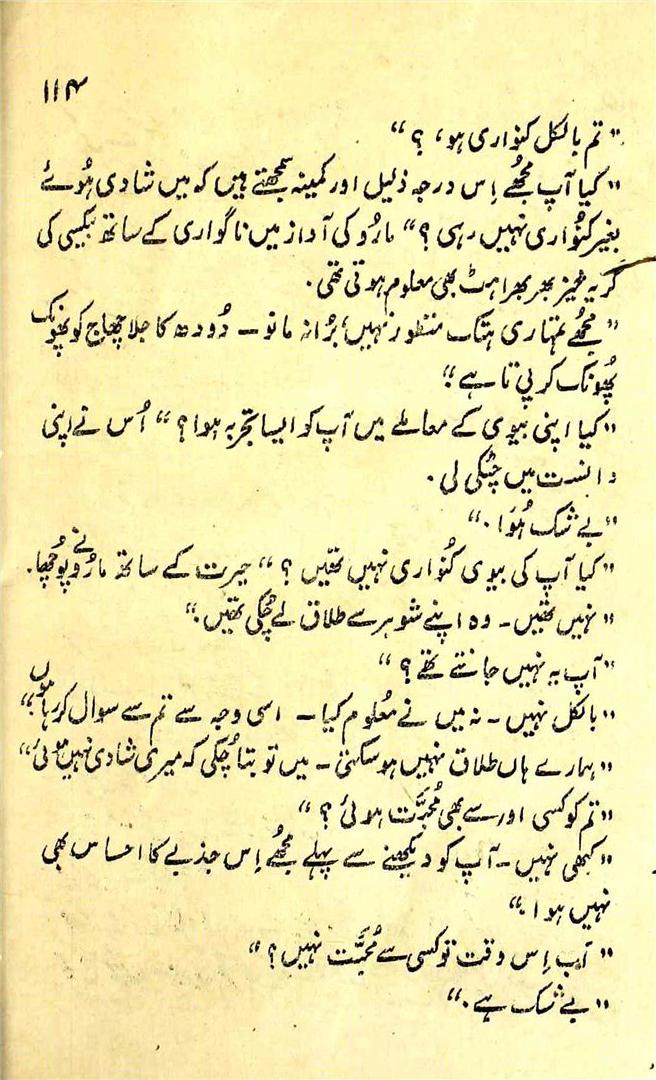 ۱۱۴
"تم بالکل کنواری ہو، ؟"
"کیا آپ مجھُے اِس درجہ ذلیل اور کمینہ سمجھتے ہیں کہ میں شادی ہوُئے
بغیر کنُواری نہیں رہی ؟" مارُو کی آواز میں ناگواری کے ساتھ بیکسی کی
گریہ خیز بھربھراہٹ بھی معلوم ہوتی تھی۔
"مجھُے تمہاری ہتک منظور نہیں، بُرا نہ مانو – دُودھ کا جلا چھاچ کو پھُونک
پھُونک کر پیتا ہے"
"کیا اپنی بیوی کے معاملے میں آپ کو ایسا تجربہ ہوا ؟" اُس نے اپنی
دانست میں چٹکی لی۔
"بے شک ہُوَا۔"
"کیا آپ کی بیوی کنُواری نہیں تھیں ؟" حیرت کے ساتھ مارُو نے پوُچھا۔
"نہیں تھیں – وہ اپنے شوہر سے طلاق لے چُکی تھیں۔"
"آپ یہ نہیں جانتے تھے ؟"
"بالکل نہیں – نہ میں نے معلُوم کیا – اسی وجہ سے تم سے سوال کر رہا ہوں۔"
"ہمارے ہاں طلاق نہیں ہو سکتی – میں تو بتا چُکی کہ میری شادی نہیں ہوئی"
"تم کو کسی اور سے بھی مُحبَّت ہوئی ؟"
"کبھی نہیں – آپ کو دیکھنے سے پہلے مجھُے اِس جذبے کا احساس بھی
نہیں ہوا۔"
"اب اِس وقت تو کسی سے مُحبَّت نہیں ؟"
"بے شک ہے۔"